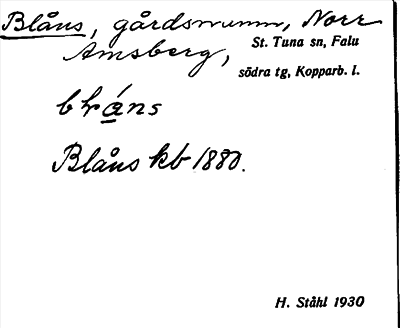 Blåns, gårdsnamn, Norr
Amsberg, St. Tuna sn, Falu
södra tg, Kopparb. l.
Blåns kb 1880.
H. Ståhl 1930